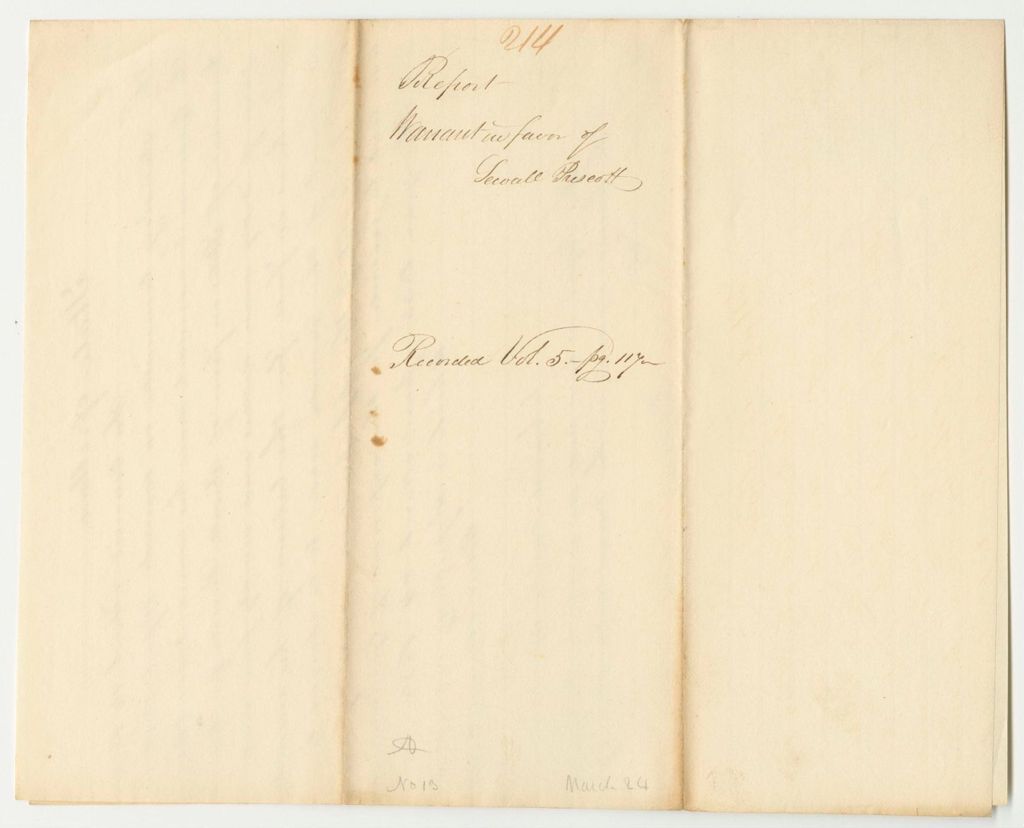 214
Report
Warrant in favor of
Sewall Prescott
Recorded Vol. 5. - pg. 117
A
No 13
March 24